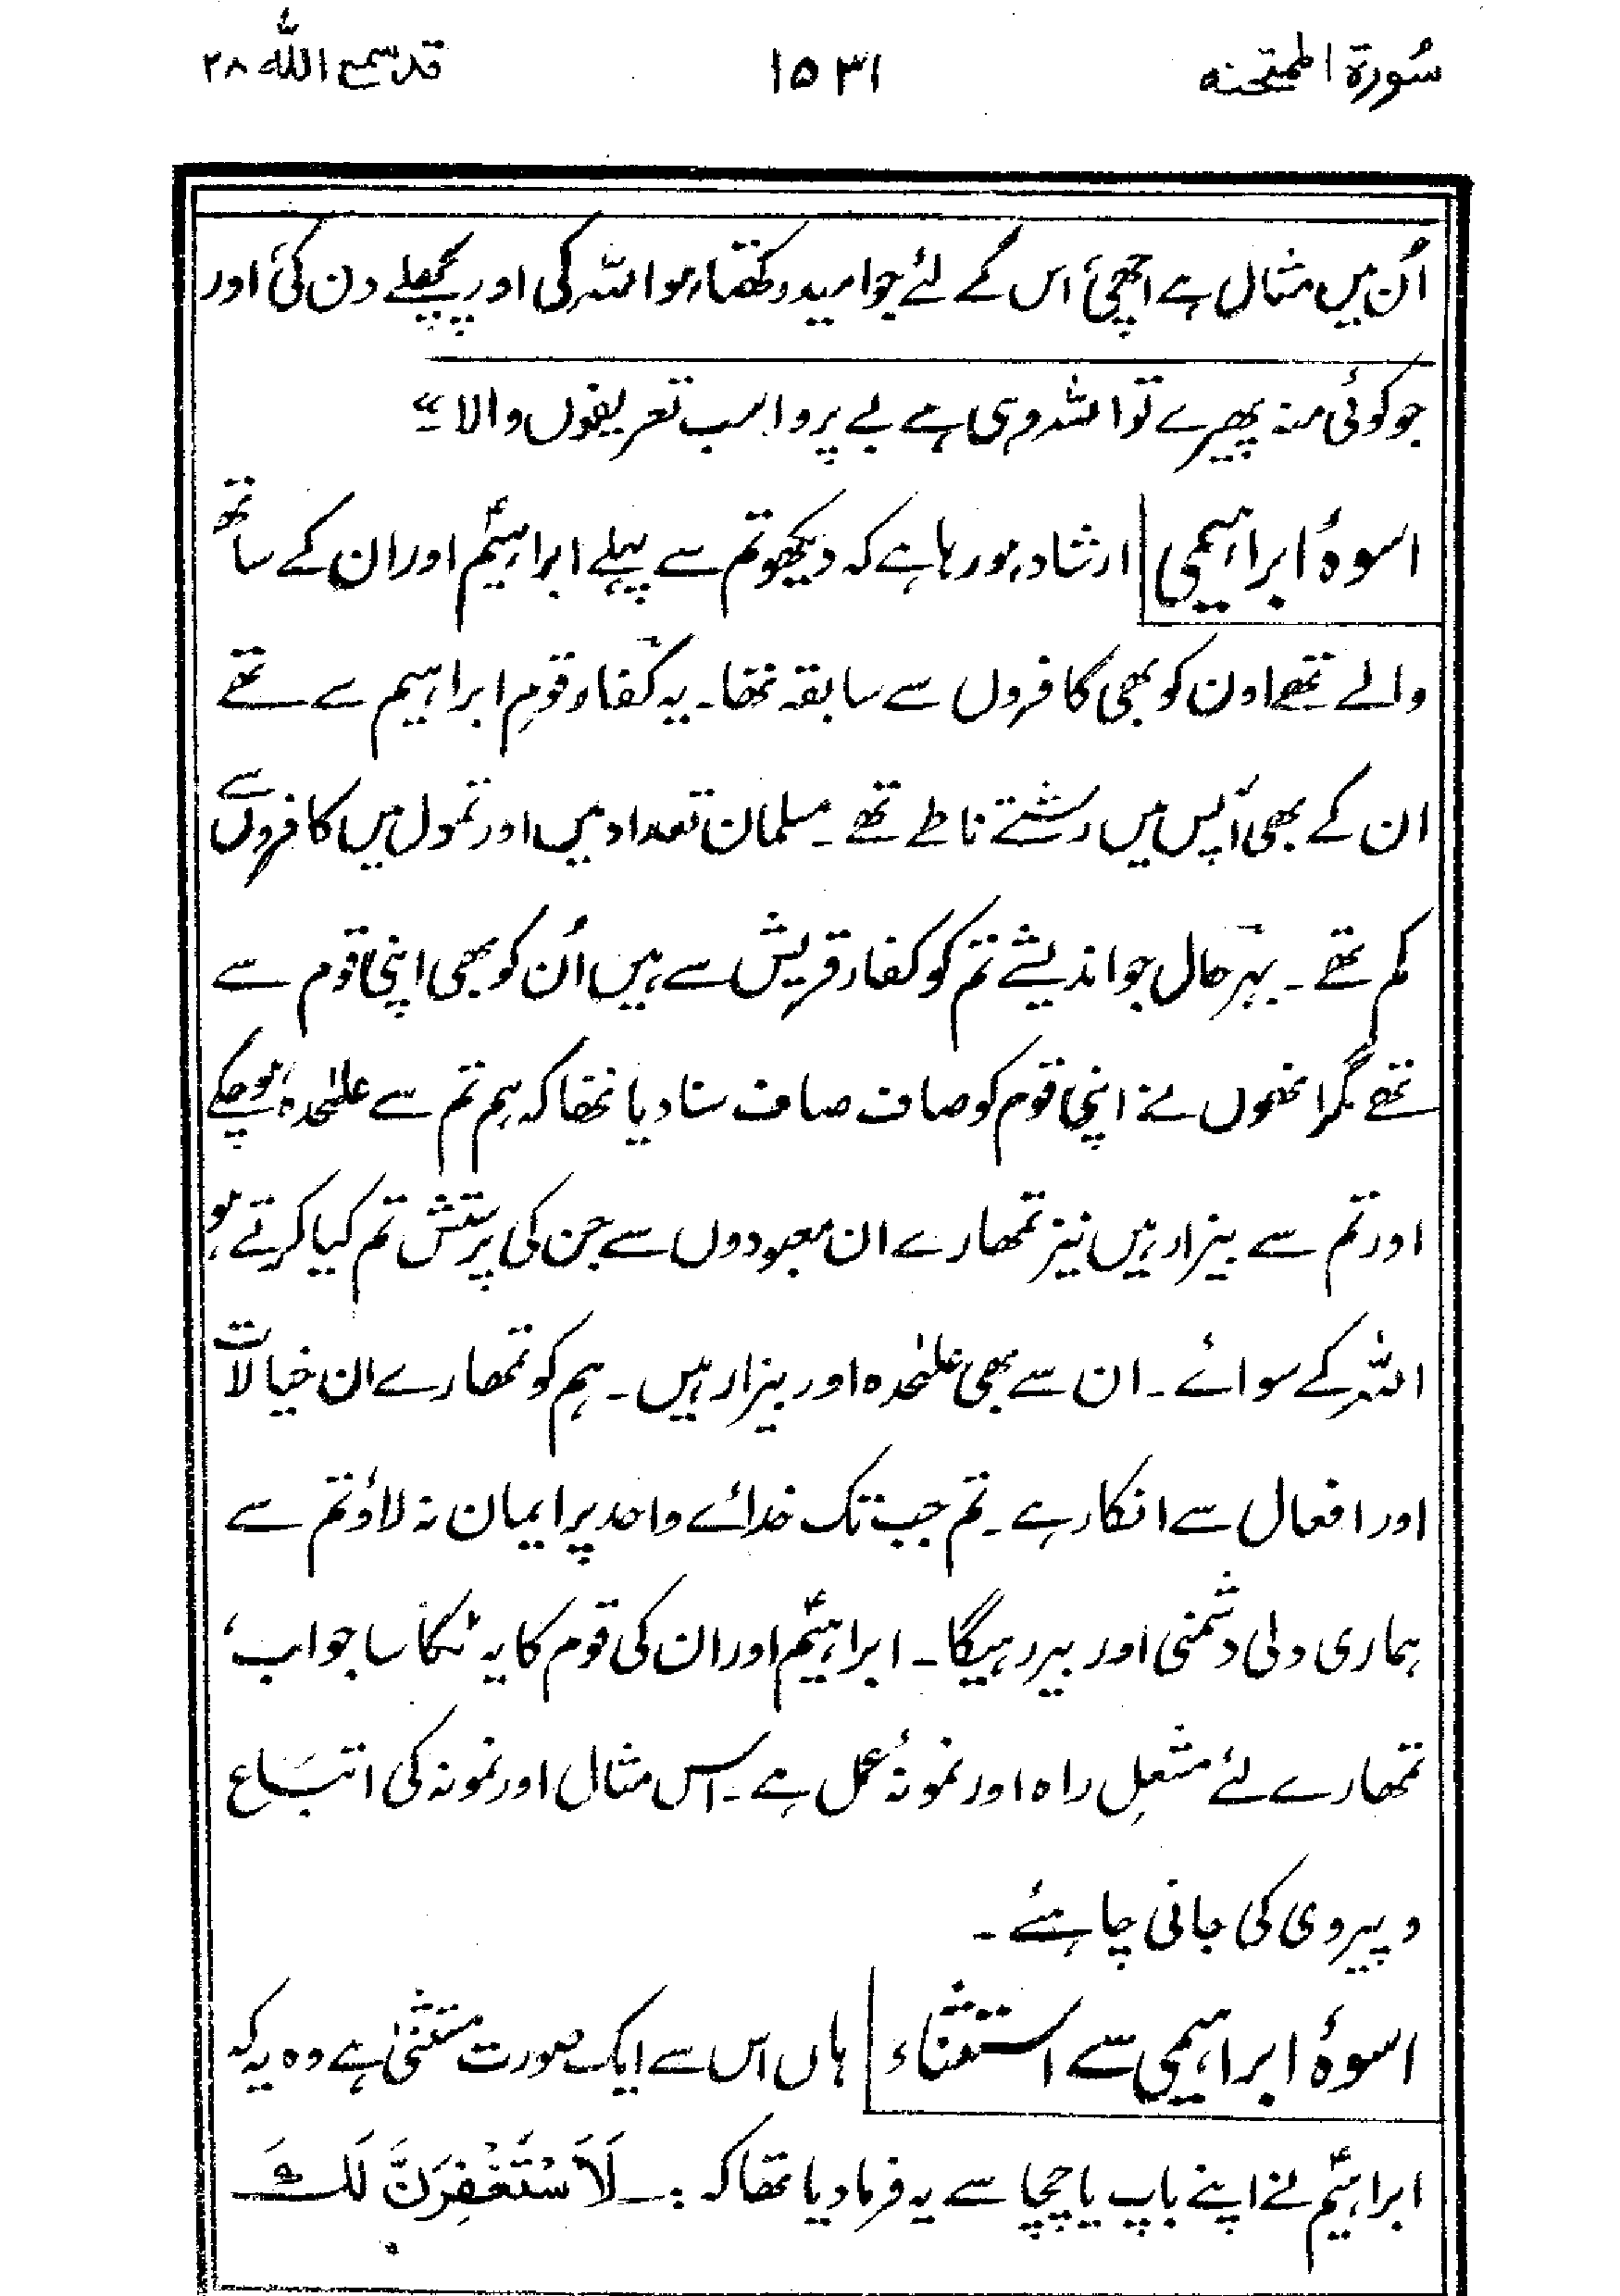 سُورۃ الممتحنہ ۱۵۳۱ قد سمع اللہ ۲۸
اُن میں مثال ہے اچھی اس کے لئے جو امید رکھتا ہو اللہ کی اور پچھلے دن کی اور
جو کوئی منہ پھیرے تو اللہ وہی ہے بے پروا سب تعریفوں والا ۔"
اسوۂ ابراہیمی ارشاد ہو رہا ہے کہ دیکھو تم سے پہلے ابراہیمؑ اور ان کے ساتھ
والے تھے اون کو بھی کافروں سے سابقہ تھا ۔ یہ کفار قومِ ابراہیم سے تھے
ان کے بھی آپس میں رشتے ناطے تھے ۔ مسلمان تعداد میں اور تمول میں کافروں سے
کم تھے ۔ بہرحال جو اندیشے تم کو کفار قریش سے ہیں اُن کو بھی اپنی قوم سے
تھے مگر انھوں نے اپنی قوم کو صاف صاف سنا دیا تھا کہ ہم تم سے علیٰحدہ ہوچکے
اور تم سے بیزار ہیں نیز تمھارے ان معبودوں سے جن کی پرستش تم کیا کرتے ہو
اللہ کے سوائے ۔ ان سے بھی علیٰحدہ اور بیزار ہیں ۔ ہم کو تمھارے ان خیالات
اور افعال سے انکار ہے ۔ تم جب تک خدائے واحد پر ایمان نہ لاؤ تم سے
ہماری دلی دشمنی اور بیر رہیگا ۔ ابراہیمؑ اور ان کی قوم کا یہ 'ٹکا سا جواب'
تمھارے لئے مشعلِ راہ اور نمونۂ عمل ہے ۔ اس مثال اور نمونہ کی اتباع
و پیروی کی جانی چاہئے ۔
اسوۂ ابراہیمی سے استثناء ہاں اس سے ایک صورت مستثنیٰ ہے وہ یہ کہ
ابراہیمؑ نے اپنے باپ یا چچا سے یہ فرما دیا تھا کہ :۔ لَاَسْتَغْفِرَنَّ لَكَ